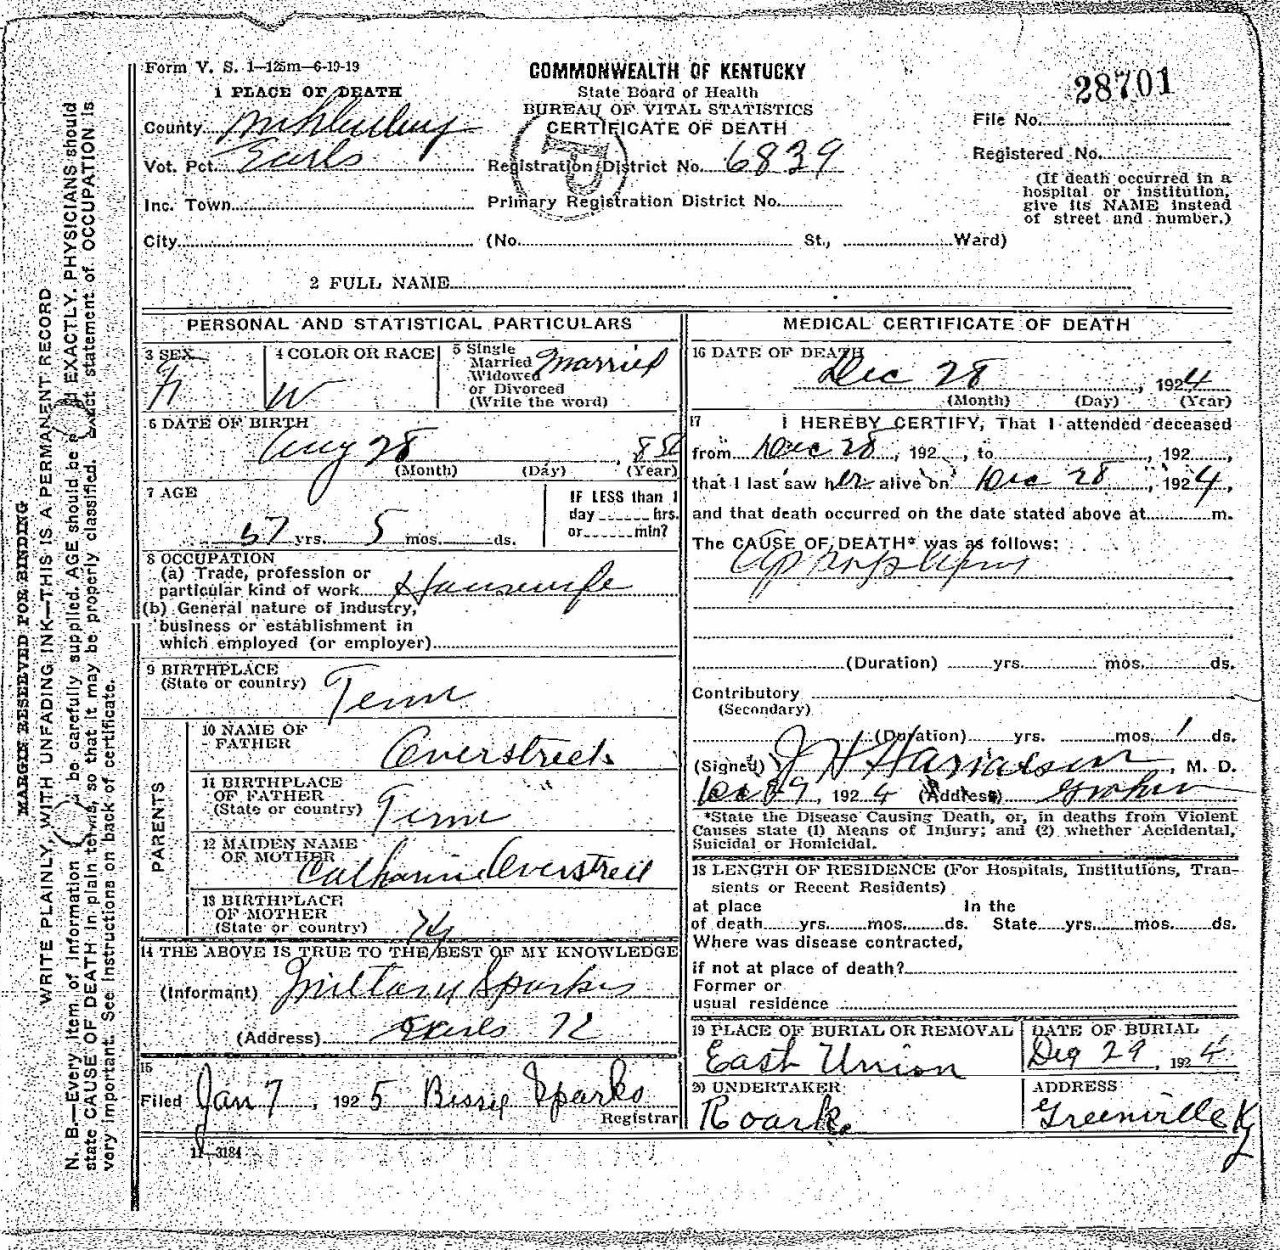 Form V. S. 1—125m—6-19-19
COMMONWEALTH OF KENTUCKY
State Board of Health
BUREAU OF VITAL STATISTICS
CERTIFICATE OF DEATH
28701
1 PLACE OF DEATH
County Muhlenburg
Vot. Pct. Earls
Inc. Town
City (No. St., Ward)
Registration District No. 6839
Primary Registration District No.
File No.
Registered No.
(If death occurred in a
hospital or institution,
give its NAME instead
of street and number.)
2 FULL NAME
PERSONAL AND STATISTICAL PARTICULARS
3 SEX F
4 COLOR OR RACE W
5 Single
Married
Widowed
or Divorced
(Write the word)
Married
6 DATE OF BIRTH
Aug 28
(Month) (Day) (Year)
7 AGE
67 yrs. 5 mos. ds.
IF LESS than 1
day hrs.
or min?
8 OCCUPATION
(a) Trade, profession or
particular kind of work Housewife
(b) General nature of industry,
business or establishment in
which employed (or employer)
9 BIRTHPLACE
(State or country) Tenn
PARENTS
10 NAME OF
FATHER Overstreet
11 BIRTHPLACE
OF FATHER
(State or country) Tenn
12 MAIDEN NAME
OF MOTHER Catharine Overstreet
13 BIRTHPLACE
OF MOTHER
(State or country) Ky
14 THE ABOVE IS TRUE TO THE BEST OF MY KNOWLEDGE
(Informant) Sparks
(Address) Earls
15
Filed Jan 7, 1925 Bessie Sparks
Registrar
11—3184
MEDICAL CERTIFICATE OF DEATH
16 DATE OF DEATH
Dec 28, 1924
(Month) (Day) (Year)
17 I HEREBY CERTIFY, That I attended deceased
from Dec 28, 192, to , 192,
that I last saw her alive on Dec 28, 1924,
and that death occurred on the date stated above at m.
The CAUSE OF DEATH* was as follows:
(Duration) yrs. mos. ds.
Contributory
(Secondary)
(Duration) yrs. mos. 1 ds.
(Signed) J H , M. D.
Dec 29, 1924 (Address)
*State the Disease Causing Death, or, in deaths from Violent
Causes state (1) Means of Injury; and (2) whether Accidental,
Suicidal or Homicidal.
18 LENGTH OF RESIDENCE (For Hospitals, Institutions, Tran-
sients or Recent Residents)
at place In the
of death yrs. mos. ds. State yrs. mos. ds.
Where was disease contracted,
if not at place of death?
Former or
usual residence
19 PLACE OF BURIAL OR REMOVAL
East Union
DATE OF BURIAL
Dec 29, 1924
20 UNDERTAKER
Roark.
ADDRESS
Greenville Ky
MARGIN RESERVED FOR BINDING
WRITE PLAINLY, WITH UNFADING INK—THIS IS A PERMANENT RECORD
N. B.—Every item of information be carefully supplied. AGE should be EXACTLY. PHYSICIANS should
state CAUSE OF DEATH in plain terms, so that it may be properly classified. Exact statement of OCCUPATION is
very important. See instructions on back of certificate.